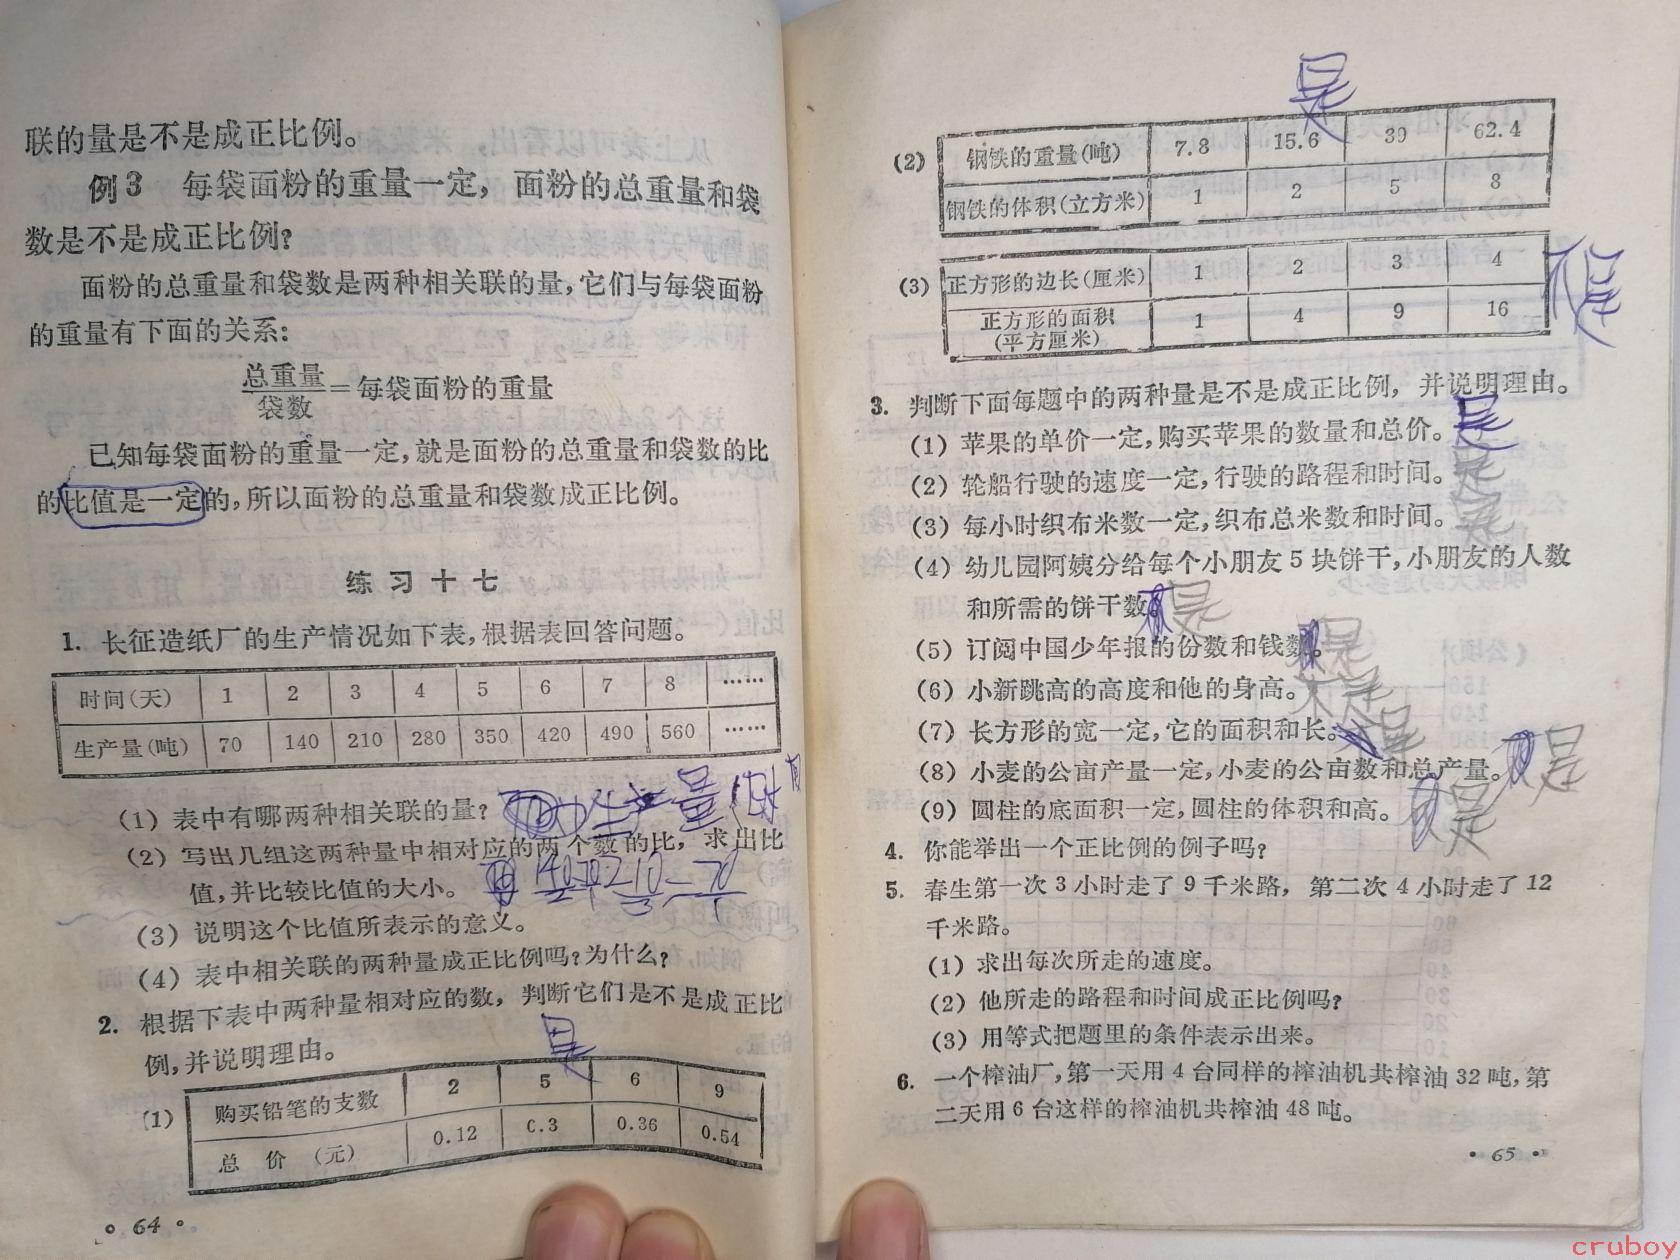 联的量是不是成正比例。
例3 每袋面粉的重量一定，面粉的总重量和袋
数是不是成正比例？
面粉的总重量和袋数是两种相关联的量，它们与每袋面粉
的重量有下面的关系：
总重量
袋数
=每袋面粉的重量
已知每袋面粉的重量一定，就是面粉的总重量和袋数的比
的比值是一定的，所以面粉的总重量和袋数成正比例。
练习十七
1. 长征造纸厂的生产情况如下表，根据表回答问题。
时间(天) 1 2 3 4 5 6 7 8 ……
生产量(吨) 70 140 210 280 350 420 490 560 ……
(1) 表中有哪两种相关联的量？ 生产量 时间
(2) 写出几组这两种量中相对应的两个数的比，求出比
值，并比较比值的大小。
(3) 说明这个比值所表示的意义。
(4) 表中相关联的两种量成正比例吗？为什么？
2. 根据下表中两种量相对应的数，判断它们是不是成正比
例，并说明理由。 是
(1) 购买铅笔的支数 2 5 6 9
总 价 (元) 0.12 0.3 0.36 0.54
64
是
(2) 钢铁的重量(吨) 7.8 15.6 39 62.4
钢铁的体积(立方米) 1 2 5 8
(3) 正方形的边长(厘米) 1 2 3 4 不是
正方形的面积
(平方厘米) 1 4 9 16
3. 判断下面每题中的两种量是不是成正比例，并说明理由。
(1) 苹果的单价一定，购买苹果的数量和总价。是
(2) 轮船行驶的速度一定，行驶的路程和时间。是
(3) 每小时织布米数一定，织布总米数和时间。是
(4) 幼儿园阿姨分给每个小朋友5块饼干，小朋友的人数
和所需的饼干数。是
(5) 订阅中国少年报的份数和钱数。是
(6) 小新跳高的高度和他的身高。不是
(7) 长方形的宽一定，它的面积和长。是
(8) 小麦的公亩产量一定，小麦的公亩数和总产量。是
(9) 圆柱的底面积一定，圆柱的体积和高。是
4. 你能举出一个正比例的例子吗？
5. 春生第一次3小时走了9千米路，第二次4小时走了12
千米路。
(1) 求出每次所走的速度。
(2) 他所走的路程和时间成正比例吗？
(3) 用等式把题里的条件表示出来。
6. 一个榨油厂，第一天用4台同样的榨油机共榨油32吨，第
二天用6台这样的榨油机共榨油48吨。
65
cruboy